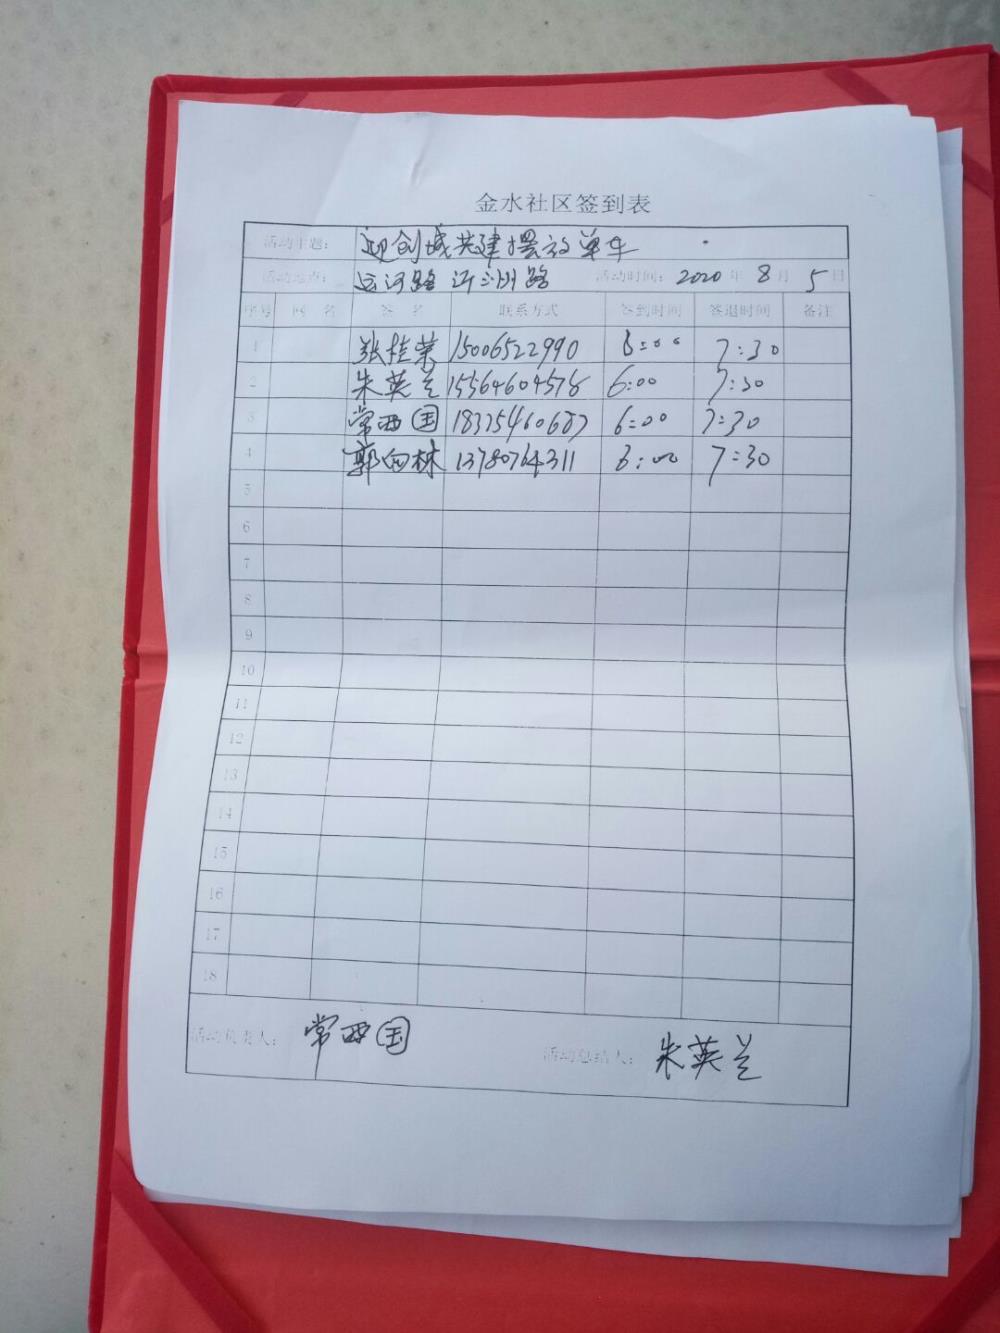 金水社区签到表
活动主题: 迎创城共建摆放单车
活动地点: 运河路 沂洲路 活动时间: 2020年 8月 5日
序号 网 名 签 名 联系方式 签到时间 签退时间 备注
1 张桂荣 15006522990 6:00 7:30
2 朱英兰 15564604578 6:00 7:30
3 常西国 18375460687 6:00 7:30
4 郭向林 13780764311 6:00 7:30
5
6
7
8
9
10
11
12
13
14
15
16
17
18
活动负责人: 常西国 活动总结人: 朱英兰